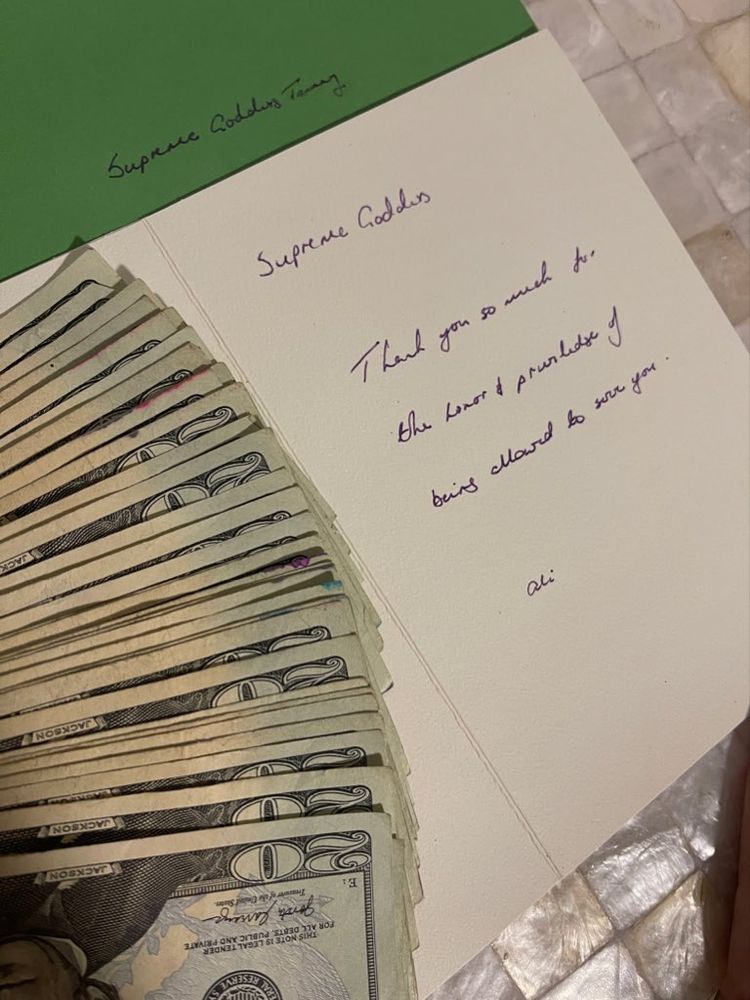 Supreme Goddess Tanny
Supreme Goddess
Thank you so much for
the honor & priviledge of
being allowed to serve you.
ali
20
20
JACKSON
20
20
JACKSON
20
20
JACKSON
20
JACKSON
E1
Treasurer of the United States.
THIS NOTE IS LEGAL TENDER
FOR ALL DEBTS, PUBLIC AND PRIVATE